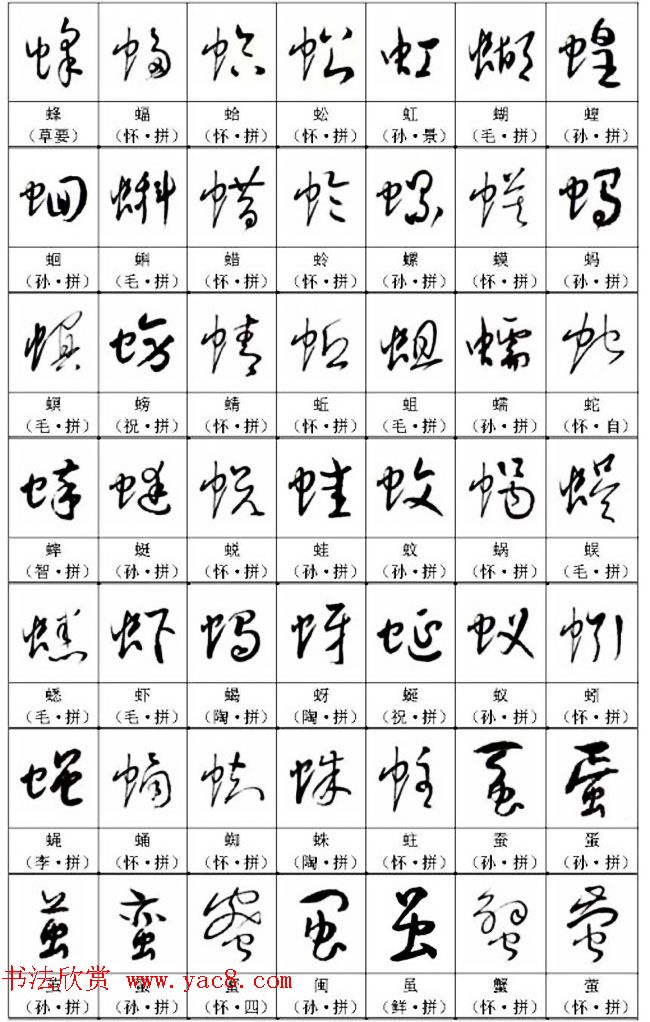 蜂 蝠 蛤 蚣 虹 蝴 蝗
(草要) (怀·拼) (怀·拼) (怀·拼) (孙·景) (毛·拼) (孙·拼)
蛔 蝌 蜡 蛉 螺 蟆 蚂
(孙·拼) (毛·拼) (怀·拼) (怀·拼) (孙·拼) (怀·拼) (孙·拼)
螟 螃 蜻 蚯 蛆 蠕 蛇
(毛·拼) (祝·拼) (怀·拼) (怀·拼) (毛·拼) (孙·拼) (怀·自)
蟀 蜓 蜕 蛙 蚊 蜗 蜈
(智·拼) (孙·拼) (怀·拼) (孙·拼) (孙·拼) (怀·拼) (毛·拼)
蟋 虾 蝎 蚜 蜒 蚁 蚓
(毛·拼) (毛·拼) (陶·拼) (陶·拼) (祝·拼) (孙·拼) (怀·拼)
蝇 蛹 蜘 蛛 蛀 蚕 蛋
(李·拼) (怀·拼) (怀·拼) (陶·拼) (怀·拼) (孙·拼) (孙·拼)
蛮 蜜 闽 虽 蟹 萤
书法欣赏 www.yac8.com
(孙·拼) (孙·拼) (怀·四) (孙·拼) (鲜·拼) (怀·拼) (怀·拼)